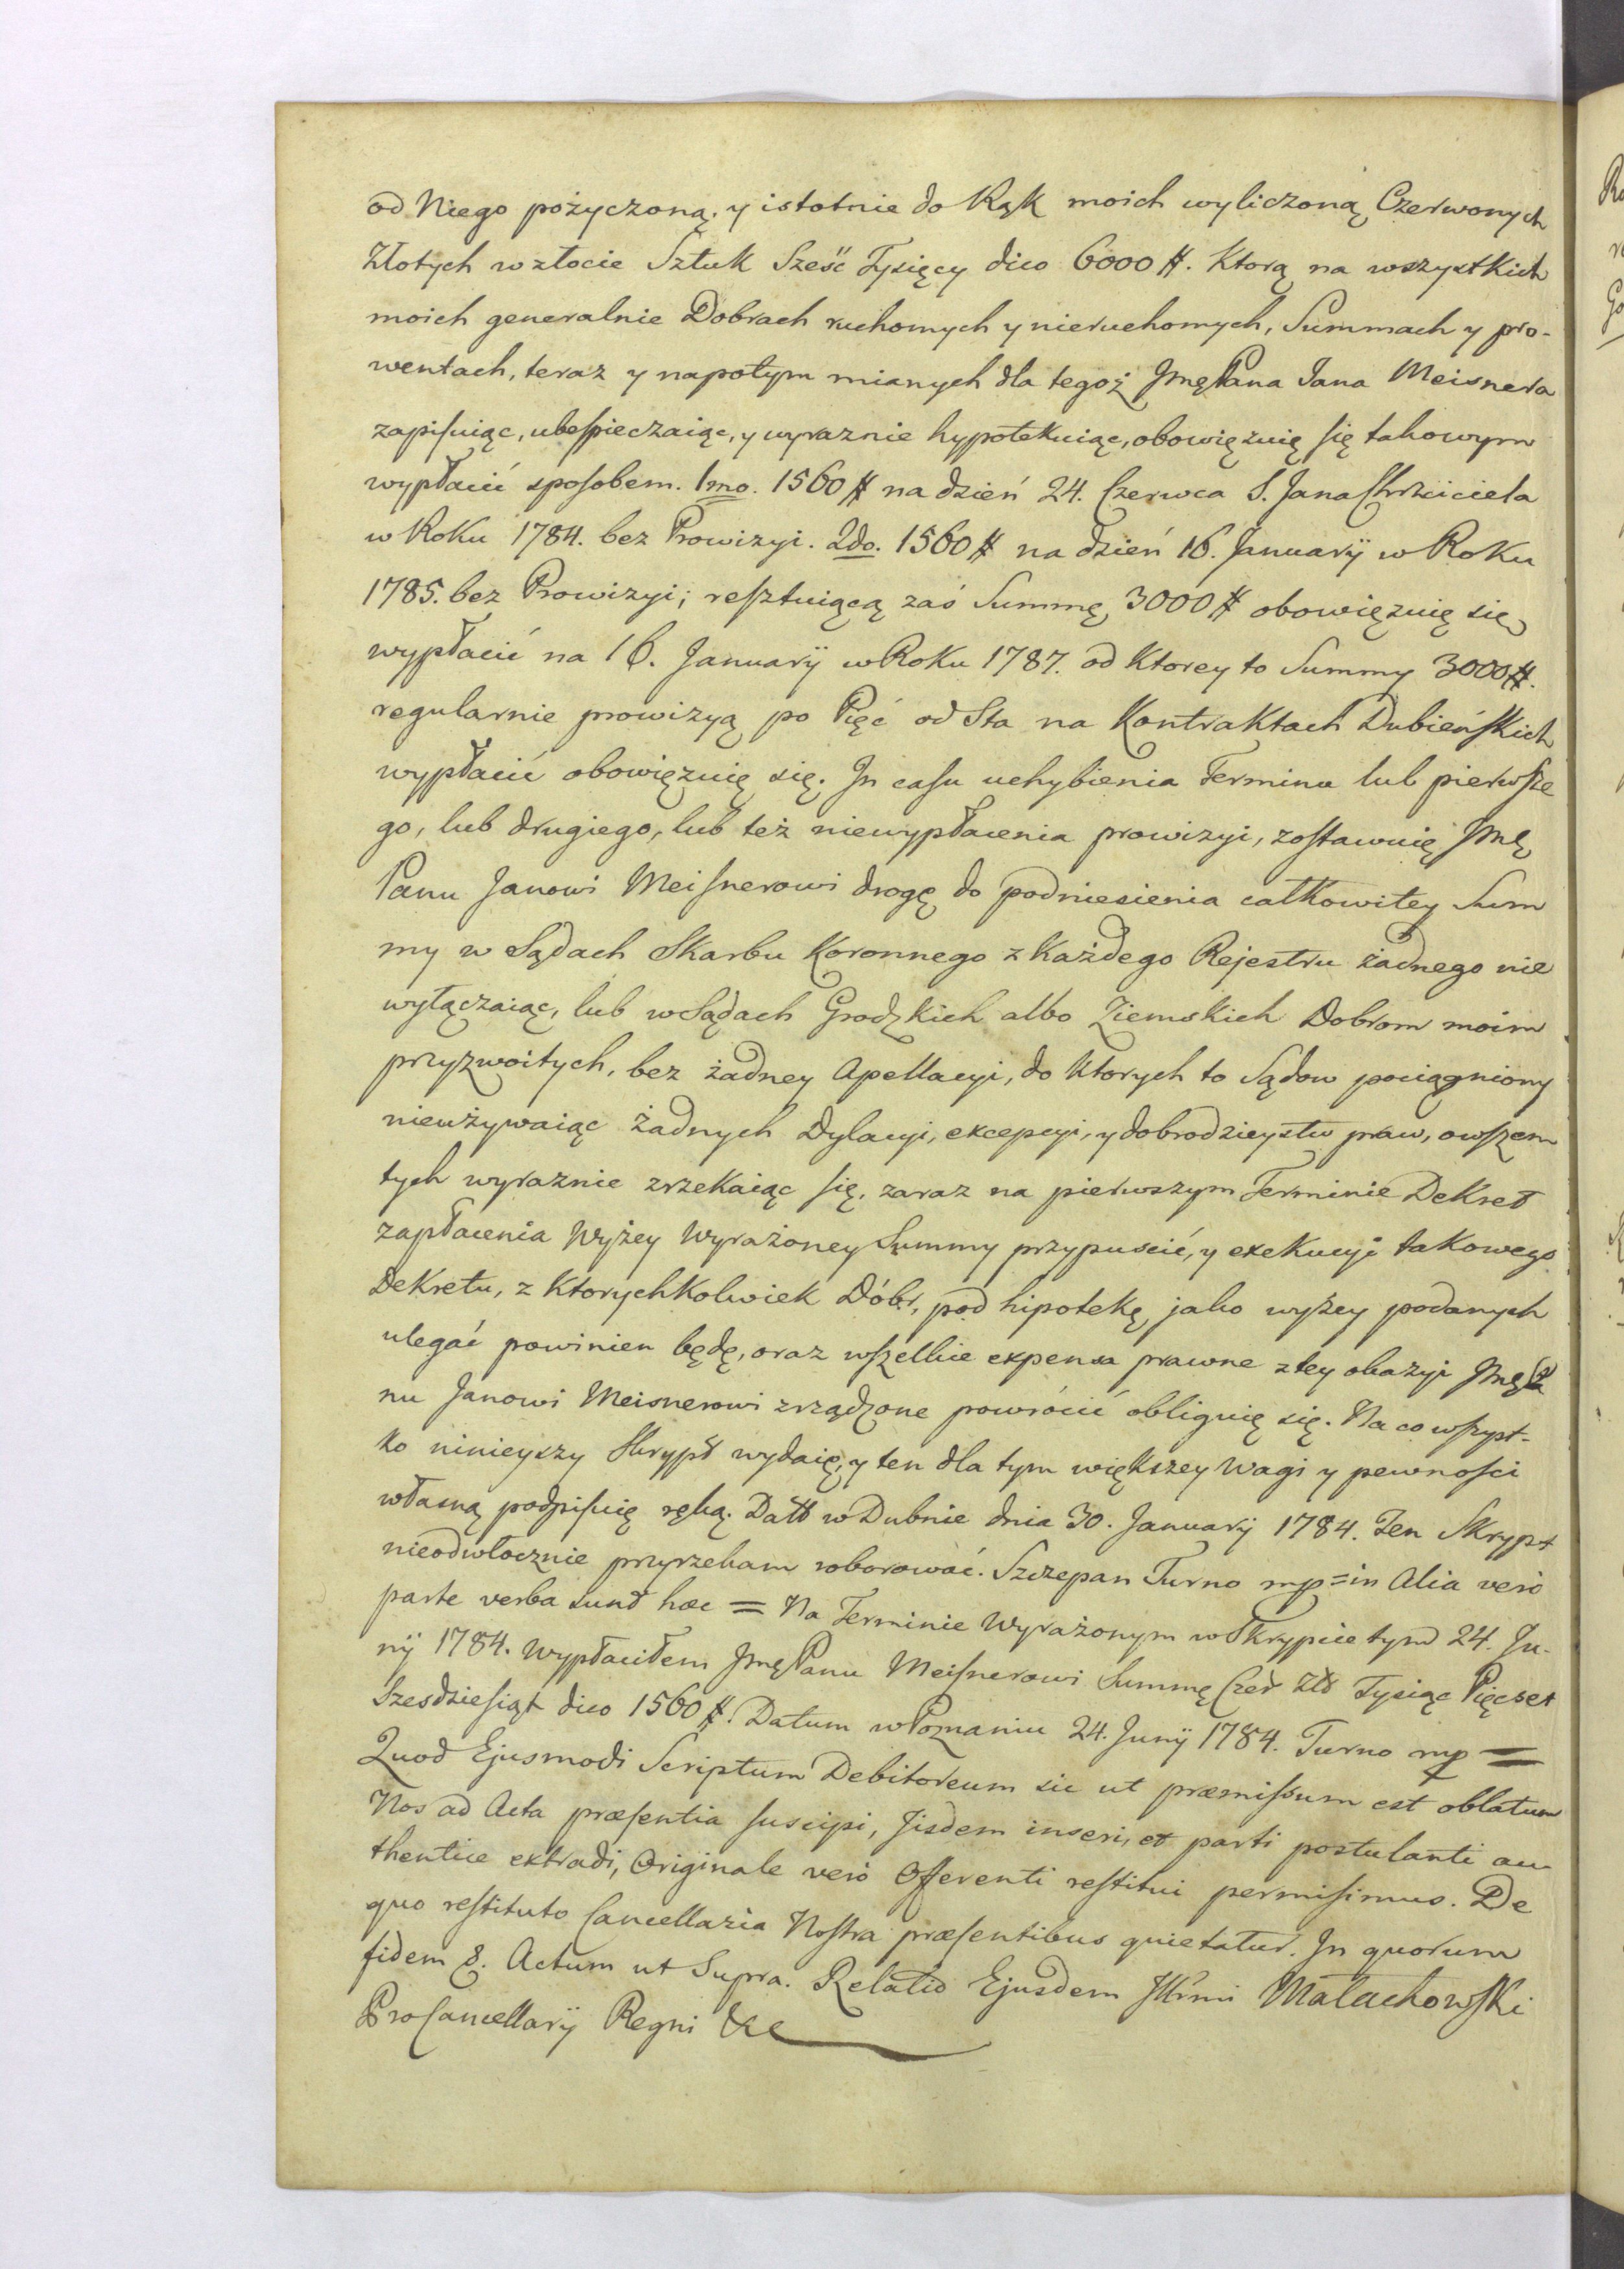 od Niego pożyczoną, y istotnie do Rąk moich wyliczoną Czerwonych
Złotych w złocie Sztuk Sześć Tysięcy dico 6000 #. Ktorą na wszystkich
moich generalnie Dobrach ruchomych y nieruchomych, Summach y pro-
wentach, teraz y napotym mianych dla tegoż Jmę Pana Jana Meisnera
zapisuiąc, ubespieczaiąc, y wyraznie hypotekuiąc, obowięzuię się takowym
wypłacić sposobem. 1mo. 1560 # na dzień 24. Czerwca S. Jana Chrzciciela
w Roku 1784. bez Prowizyi. 2do. 1560 # na dzień 16. Januarij w Roku
1785. bez Prowizyi; resztuiącą zaś Summę 3000 # obowięzuię się
wypłacić na 16. Januarij w Roku 1787. od Ktorey to Summy 3000 #.
regularnie prowizyą po Pięć od Sta na Kontraktach Dubieńskich
wypłacić obowięzuię się. In casu uchybienia Terminu lub pierwsze
go, lub drugiego, lub też niewypłacenia prowizyi, zostawuię Jmę
Panu Janowi Meisnerowi drogę do podniesienia całkowitey Sum
my w Sądach Skarbu Koronnego z Każdego Rejestru żadnego nie
wyłączaiąc, lub w Sądach Grodzkich albo Ziemskich Dobrom moim
przyzwoitych, bez żadney Apellacyi, do Ktorych to Sądow pociągniony
nieużywaiąc żadnych Dylacyi, excepcyi, y dobrodzieystw praw, owszem
tych wyraznie zrzekaiąc się, zaraz na pierwszym Terminie Dekret
zapłacenia Wyżey Wyrażoney Summy przypuscić, y exekucyi takowego
Dekretu, z Ktorychkolwiek Dóbr, pod hipotekę, jako wyżey podanych
ulegać powinien będę, oraz wszelkie expensa prawne z tey okazyi Jmę Pa
nu Janowi Meisnerowi zrządzone powrócić obliguię się. Na co wszyst-
ko ninieyszy Skrypt wydaię, y ten dla tym większey Wagi y pewności
własną podpisuię ręką. Datt w Dubnie dnia 30. Januarij 1784. Ten Skrypt
nieodwłocznie przyrzekam roborować. Szczepan Turno mp = in Alia verò
parte verba sunt hæc = Na Terminie Wyrażonym w Skrypcie tym 24. Ju-
nij 1784. Wypłaciłem Jmę Panu Meisnerowi Summę Czer Złł Tysiąc Pięcset
Szesdziesiąt dico 1560 #. Datum w Poznaniu 24. Junij 1784. Turno mp =
Quod Ejusmodi Scriptum Debitoreum sic ut præmissum est oblatum
Nos ad Acta præsentia suscipi, Jisdem inseri, et parti postulanti au-
thentice extradi, Originale verò Offerenti restitui permisimus. De
quo restituto Cancellaria Nostra præsentibus quietatur. In quorum
fidem &. Actum ut Supra. Relatio Ejusdem Illrmi Małachowski
ProCancellarij Regni &c